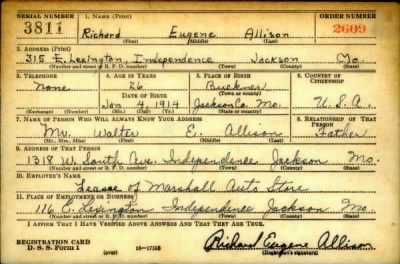 SERIAL NUMBER 1. NAME (Print) ORDER NUMBER
3811 Richard Eugene Allison 2609
(First) (Middle) (Last)
2. ADDRESS (Print)
315 E. Lexington, Independence Jackson Mo.
(Number and street or R. F. D. number) (Town) (County) (State)
3. TELEPHONE 4. AGE IN YEARS 5. PLACE OF BIRTH 6. COUNTRY OF CITIZENSHIP
None 26 Buckner
DATE OF BIRTH (Town or county)
Jan 4, 1914 Jackson Co. Mo. U.S.A.
(Exchange) (Number) (Mo.) (Day) (Yr.) (State or country)
7. NAME OF PERSON WHO WILL ALWAYS KNOW YOUR ADDRESS 8. RELATIONSHIP OF THAT PERSON
Mr. Walter E. Allison Father
(Mr., Mrs., Miss) (First) (Middle) (Last)
9. ADDRESS OF THAT PERSON
1318 W. South Ave. Independence Jackson Mo.
(Number and street or R. F. D. number) (Town) (County) (State)
10. EMPLOYER'S NAME
Leasee of Marshall Auto Store
11. PLACE OF EMPLOYMENT OR BUSINESS
116 E. Lexington Independence Jackson Mo
(Number and street or R. F. D. number) (Town) (County) (State)
I AFFIRM THAT I HAVE VERIFIED ABOVE ANSWERS AND THAT THEY ARE TRUE.
REGISTRATION CARD
D. S. S. Form 1 (over) 16-17105 Richard Eugene Allison
(Registrant's signature)